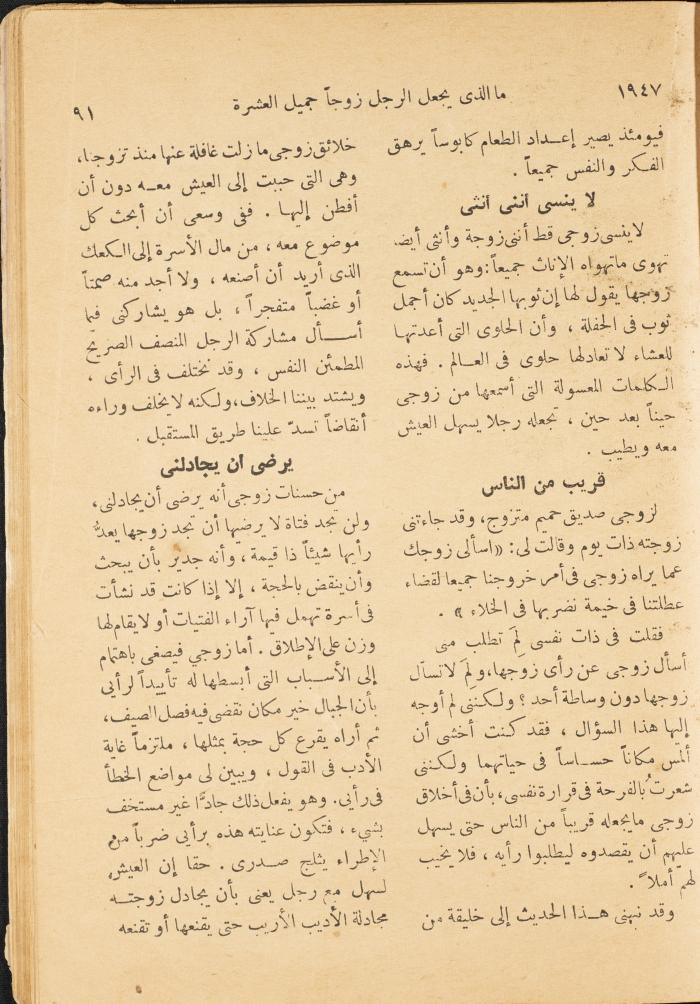 ١٩٤٧
ما الذى يجعل الرجل زوجاً جميل العشرة
٩١
فيومئذ يصير إعداد الطعام كابوساً يرهق
الفكر والنفس جميعاً .
لا ينسى أننى أنثى
لا ينسى زوجى قط أننى زوجة وأنثى أيضاً
تهوى ماتهواه الإناث جميعاً : وهو أن تسمع
زوجها يقول لها إن ثوبها الجديد كان أجمل
ثوب فى الحفلة ، وأن الحلوى التى أعدتها
للعشاء لا تعادلها حلوى فى العالم . فهذه
الكلمات المعسولة التى أسمعها من زوجى
حيناً بعد حين ، تجعله رجلا يسهل العيش
معه ويطيب .
قريب من الناس
لزوجى صديق حميم متزوج، وقد جاءتنى
زوجته ذات يوم وقالت لى : «اسألى زوجك
عما يراه زوجى فى أمر خروجنا جميعا لقضاء
عطلتنا فى خيمة نضربها فى الخلاء » .
فقلت فى ذات نفسى لِمَ تطلب منى
أسأل زوجى عن رأى زوجها، ولِمَ لاتسأل
زوجها دون وساطة أحد ؟ ولكننى لم أوجه
إليها هذا السؤال ، فقد كنت أخشى أن
ألمس مكاناً حساساً فى حياتهما ولكننى
شعرت بالفرحة فى قرارة نفسى، بأن فى أخلاق
زوجى مايجعله قريباً من الناس حتى يسهل
عليهم أن يقصدوه ليطلبوا رأيه ، فلا يخيب
لهم أملاً .
وقد نبهنى هذا الحديث إلى خليقة من
خلائق زوجى ما زلت غافلة عنها منذ تزوجنا،
وهى التى حببت إلى العيش معه دون أن
أفطن إليها . ففى وسعى أن أبحث كل
موضوع معه ، من مال الأسرة إلى الكعك
الذى أريد أن أصنعه ، ولا أجد منه صمتاً
أو غضباً متفجراً ، بل هو يشاركنى فيما
أسأل مشاركة الرجل المنصف الصريح
المطمئن النفس ، وقد نختلف فى الرأى ،
ويشتد بيننا الخلاف، ولكنه لا يخلف وراءه
أنقاضاً تسدّ علينا طريق المستقبل .
يرضى أن يجادلنى
من حسنات زوجى أنه يرضى أن يجادلنى،
ولن تجد فتاة لا يرضيها أن تجد زوجها يعدُّ
رأيها شيئاً ذا قيمة ، وأنه جدير بأن يبحث
وأن ينقض بالحجة ، إلا إذا كانت قد نشأت
فى أسرة تهمل فيها آراء الفتيات أو لايقام لها
وزن على الإطلاق . أما زوجي فيصغى باهتمام
إلى الأسباب التى أبسطها له تأييداً لرأيى
بأن الجبال خير مكان نقضى فيه فصل الصيف،
ثم أراه يقرع كل حجة بمثلها ، ملتزماً غاية
الأدب فى القول ، ويبين لى مواضع الخطأ
فى رأيى. وهو يفعل ذلك جادًّا غير مستخف
بشىء ، فتكون عنايته هذه برأيى ضرباً من
الإطراء يثلج صدرى . حقا إن العيش
لسهل مع رجل يعنى بأن يجادل زوجته
مجادلة الأديب الأريب حتى يقنعها أو تقنعه